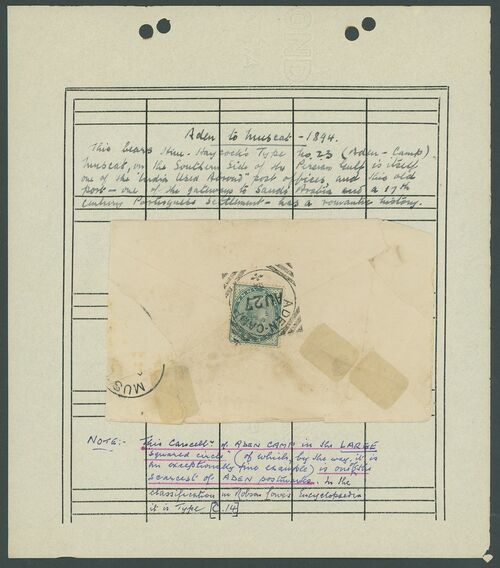 Aden to Muscat - 1894.
This bears Hine-Haycock's Type No. 23 (Aden-Camp).
Muscat, on the Southern Side of the Persian Gulf is itself
one of the "India Used Abroad" post offices, and this old
port - one of the gateways to Saudi Arabia and a 17th
Century Portuguese Settlement - has a romantic history.
ADEN-CAMP
AU27
MUS
NOTE:- This Cancelln of ADEN CAMP in the LARGE
squared circle (of which, by the way, it is
an exceptionally fine example) is one of the
scarcest of ADEN postmarks. In the
classification in Robson Lowe's Encyclopaedia
it is Type C.14